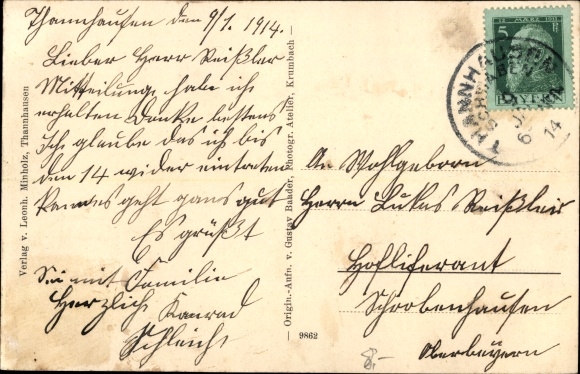 Thannhausen den 9/1. 1914.
Lieber Herr Reißler
Mitteilung, habe ich
erhalten Danke bestens
Ich glaube das ich bis
den 14 wider eintreten
geht gans gut
Es grüßt
Sie mit Familie
Herzlich Konrad
Schleich
Verlag v. Leonh. Minholz, Thannhausen
— Origin.-Aufn. v. Gustav Baader, Photogr. Atelier, Krumbach —
9862
5
BAYERN
THANNHAUSEN
SCHWABEN
9 JAN
14
An Wohlgeborn
Herrn Lukas Reißler
Hofliferant
Schrobenhausen
Oberbayern
8,-